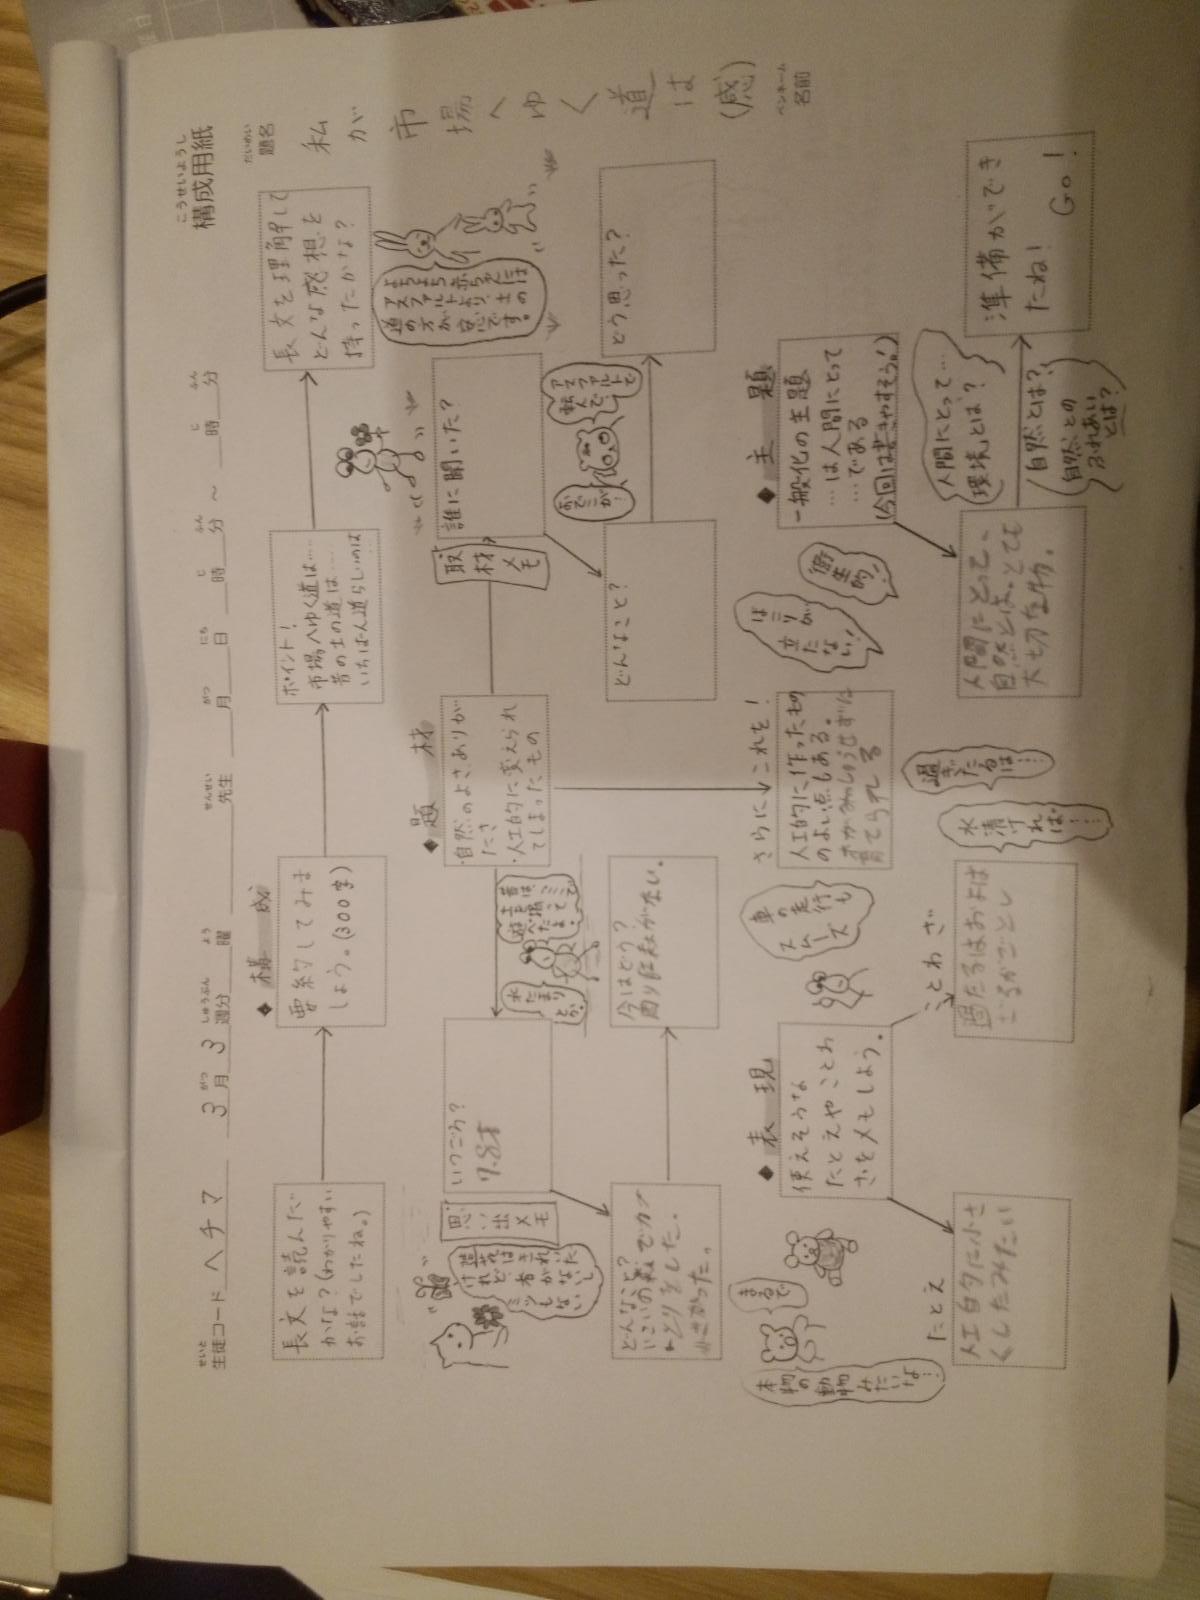 構成用紙
こうせいようし
生徒コード ヘチマ 3月3週分 曜 先生 月 日 時 分 ～ 時 分
題名
だいめい
私が市場へゆく道は(感)
ペンネーム
名前
構成
長文を読んだ
かな?(わかりやすい
お話でしたね。)
要約してみま
しょう。(300字)
ポイント!
市場へゆく道は……
昔の土の道は……
いちばん道らしいのは
長文を理解して
どんな感想を
持ったかな?
よちよち赤ちゃんには
アスファルトより、土の
道の方が安心です。
題材
・自然のよさ、ありが
たさ
・人工的に変えられ
てしまったもの
思い出メモ
いつごろ?
7.8才
どんなこと?
した。
今はどう?
水たまり
とか。
道はきれい
だけれど
取材メモ
誰に聞いた?
どんなこと?
どう思った?
アスファルトで
転んで、
おでこが!
さらに これを!
人工的に作ったもの
のよい点もある。
育てられる
車の走行も
スムーズ
ほこりが
立たない!
衛生的!
主題
一般化の主題
…は人間にとって
…である
(今回は書きやすそう!)
人間にとって、
自然とは、とても
大切な物。
人間にとって…
環境とは?
自然とは?
自然との
ふれあい
とは?
準備ができ
たね!
Go!
表現
使えそうな
たとえやことわ
ざをメモしよう。
たとえ
人工的に小さ
くしたみたい
まるで
本物の動物みたいな…
ことわざ
過たるはおよば
ざるがごとし
過ぎたるは…
水清ければ…